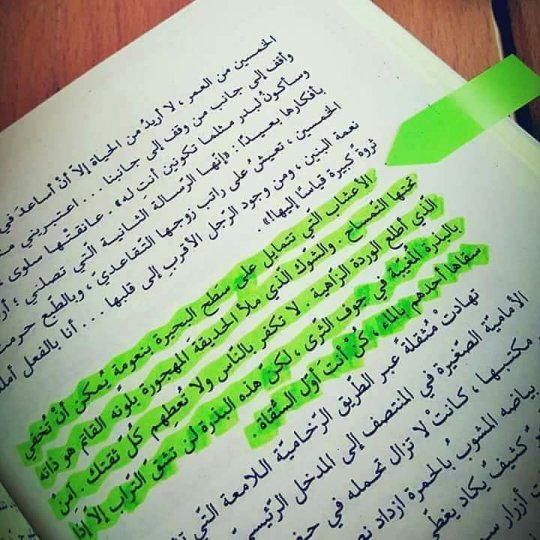 الخمسين من العمر، لا أريدُ من الحياة إلّا أنْ أساعدَ في
وأقف إلى جانب من وقف إلى جانبنا ... اعتبريني
وسأكونُ لبدر مثلما تكونين أنت له». عانقتْها سلوى
بأفكارها بعيداً: «إنّها الرّسالة الثانية الّتي تصلني؛
الخمسين، تعيشُ على راتب زوجها التّقاعديّ، وبالطّبع
نعمة البنين، ومن وجود الرّجل الأقرب إلى قلبها ... أنا بالفعل
ثروةً كبيرة قياساً إليها!».
الأعشاب التي تتمايل على سطح البحيرة بنعومة يُمكن أنْ تُخفي
تحتها التّمساح. والشّوك الّذي ملأ الحديقة المهجورة بلونه القاتم هو ذاته
الّذي أطلع الوردة الزّاهية. لا تكفر بالنّاس ولا تُعطِهم كلّ ثقتك. آمنْ
بالبذرة المُغيّبة في جوف الثّرى، لكنّ هذه البذرة لن تشقّ التراب إلاّ إذا
سقاها أحدهم بالماء، كنْ أنتَ أوّل السُّقاة.
تهادتْ مُتثقلةً عبر الطّريق الرّخاميّة اللامعة الّتي
الأماميّة الصّغيرة في المنتصف إلى المدخل الرّئيسيّ
مكتبها، كانتْ لا تزال تحمله في
بياضه المشوب بالحمرة ازداد
كثيف يكاد يغطّي
أزرار